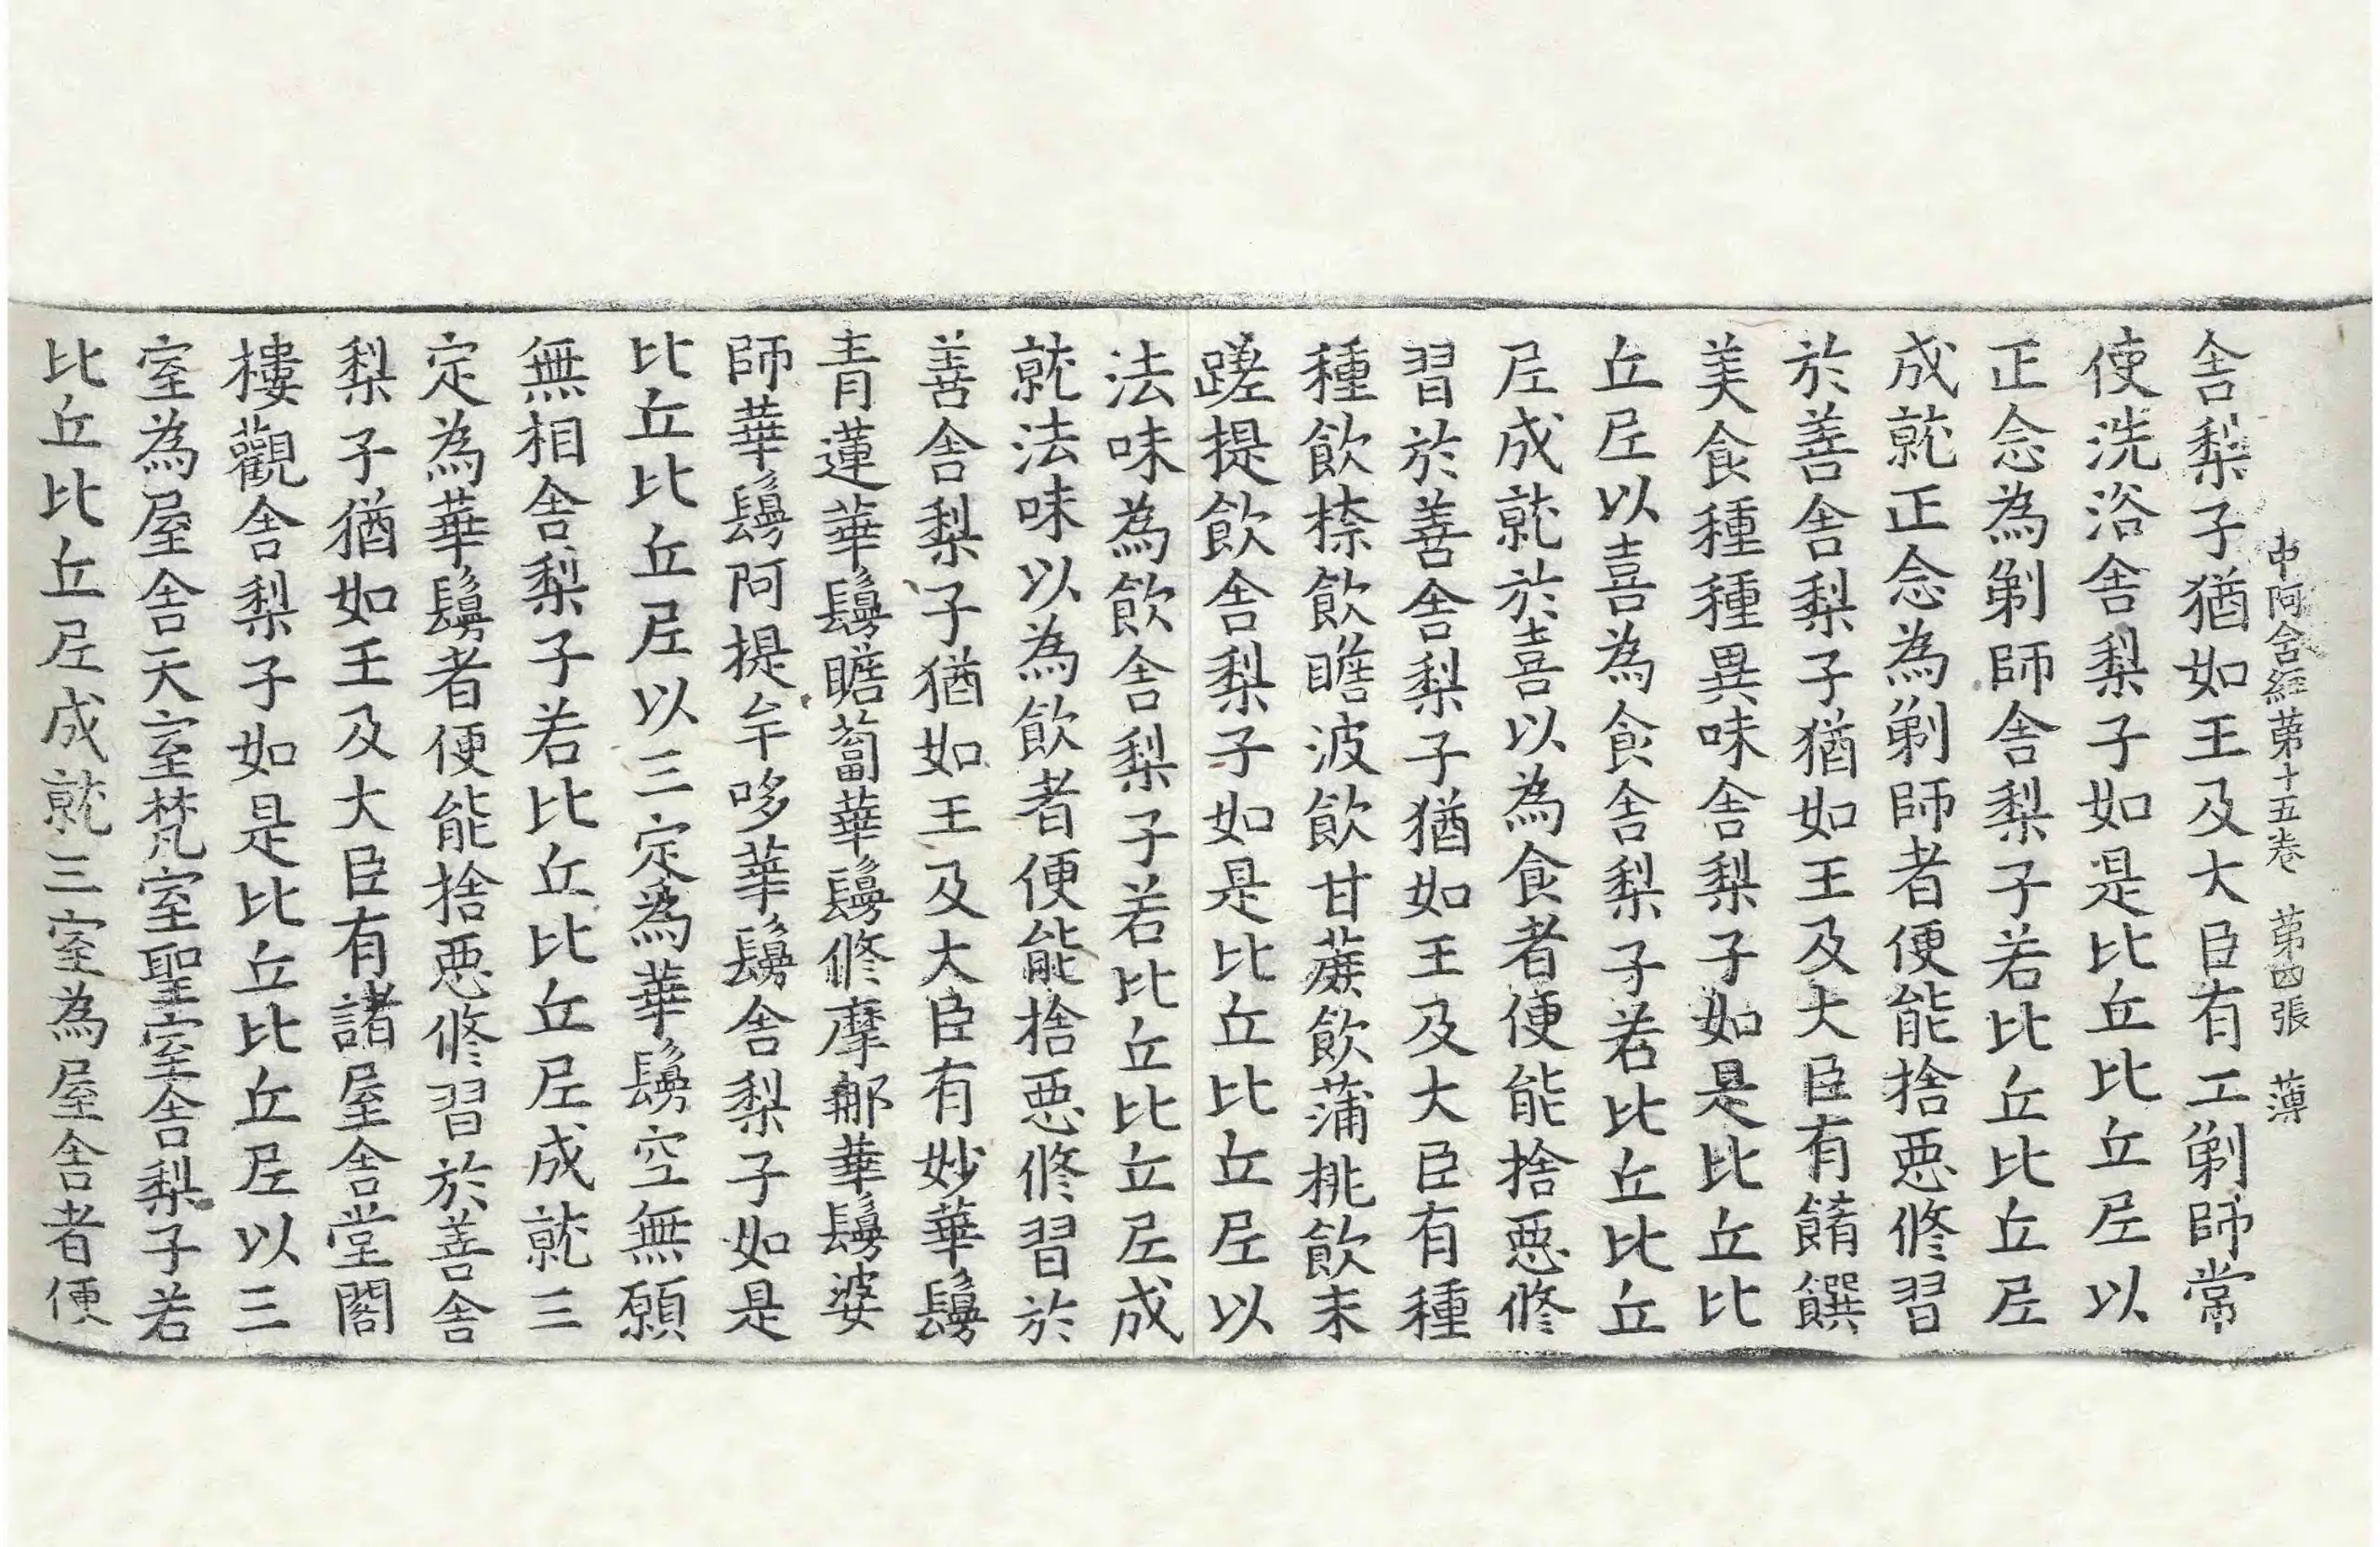 中阿含經第十五卷 第四張 薄
舍梨子猶如王及大臣有工剃師常
使洗浴舍梨子如是比丘比丘尼以
正念為剃師舍梨子若比丘比丘尼
成就正念為剃師者便能捨惡修習
於善舍梨子猶如王及大臣有餚饌
美食種種異味舍梨子如是比丘比
丘尼以喜為食舍梨子若比丘比丘
尼成就於喜以為食者便能捨惡修
習於善舍梨子猶如王及大臣有種
種飲㮈飲瞻波飲甘蔗飲蒲桃飲末
蹉提飲舍梨子如是比丘比丘尼以
法味為飲舍梨子若比丘比丘尼成
就法味以為飲者便能捨惡修習於
善舍梨子猶如王及大臣有妙華鬘
青蓮華鬘瞻蔔華鬘修摩那華鬘婆
師華鬘阿提牟哆華鬘舍梨子如是
比丘比丘尼以三定爲華鬘空無願
無相舍梨子若比丘比丘尼成就三
定為華鬘者便能捨惡修習於善舍
梨子猶如王及大臣有諸屋舍堂閣
樓觀舍梨子如是比丘比丘尼以三
室為屋舍天室梵室聖室舍梨子若
比丘比丘尼成就三室為屋舍者便